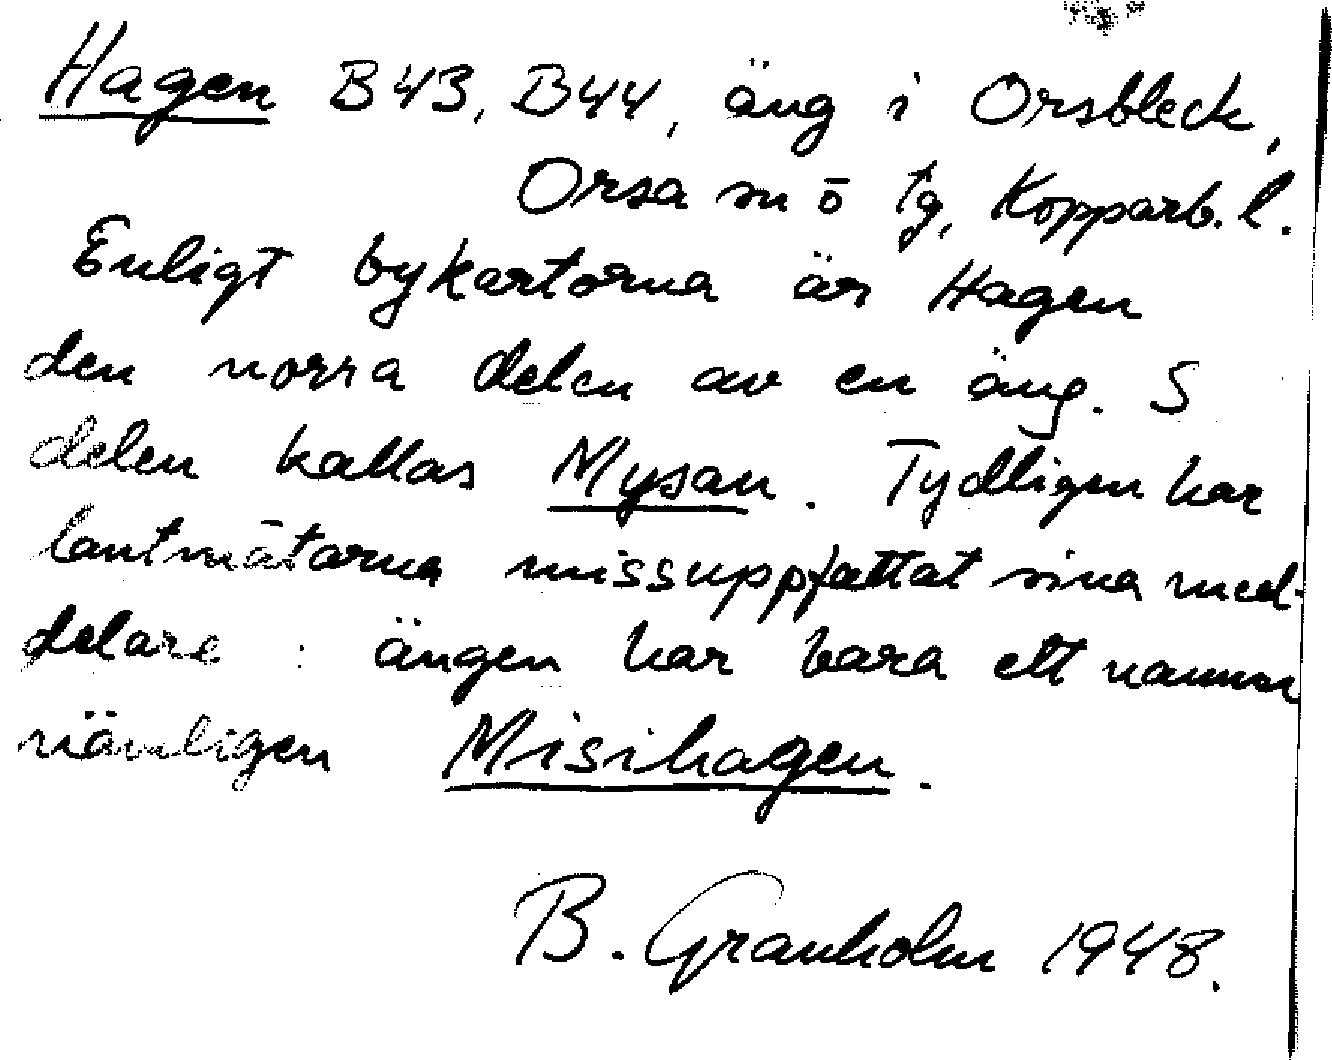 Hagen B43, B44, äng i Orsbleck,
Orsa sn ö tg, Kopparb. l.
Enligt bykartorna är Hagen
den norra delen av en äng. S
delen kallas Mysan. Tydligen har
lantmätarna missuppfattat sina med-
delare : ängen har bara ett namn
nämligen Misihagen.
B. Granholm 1948.